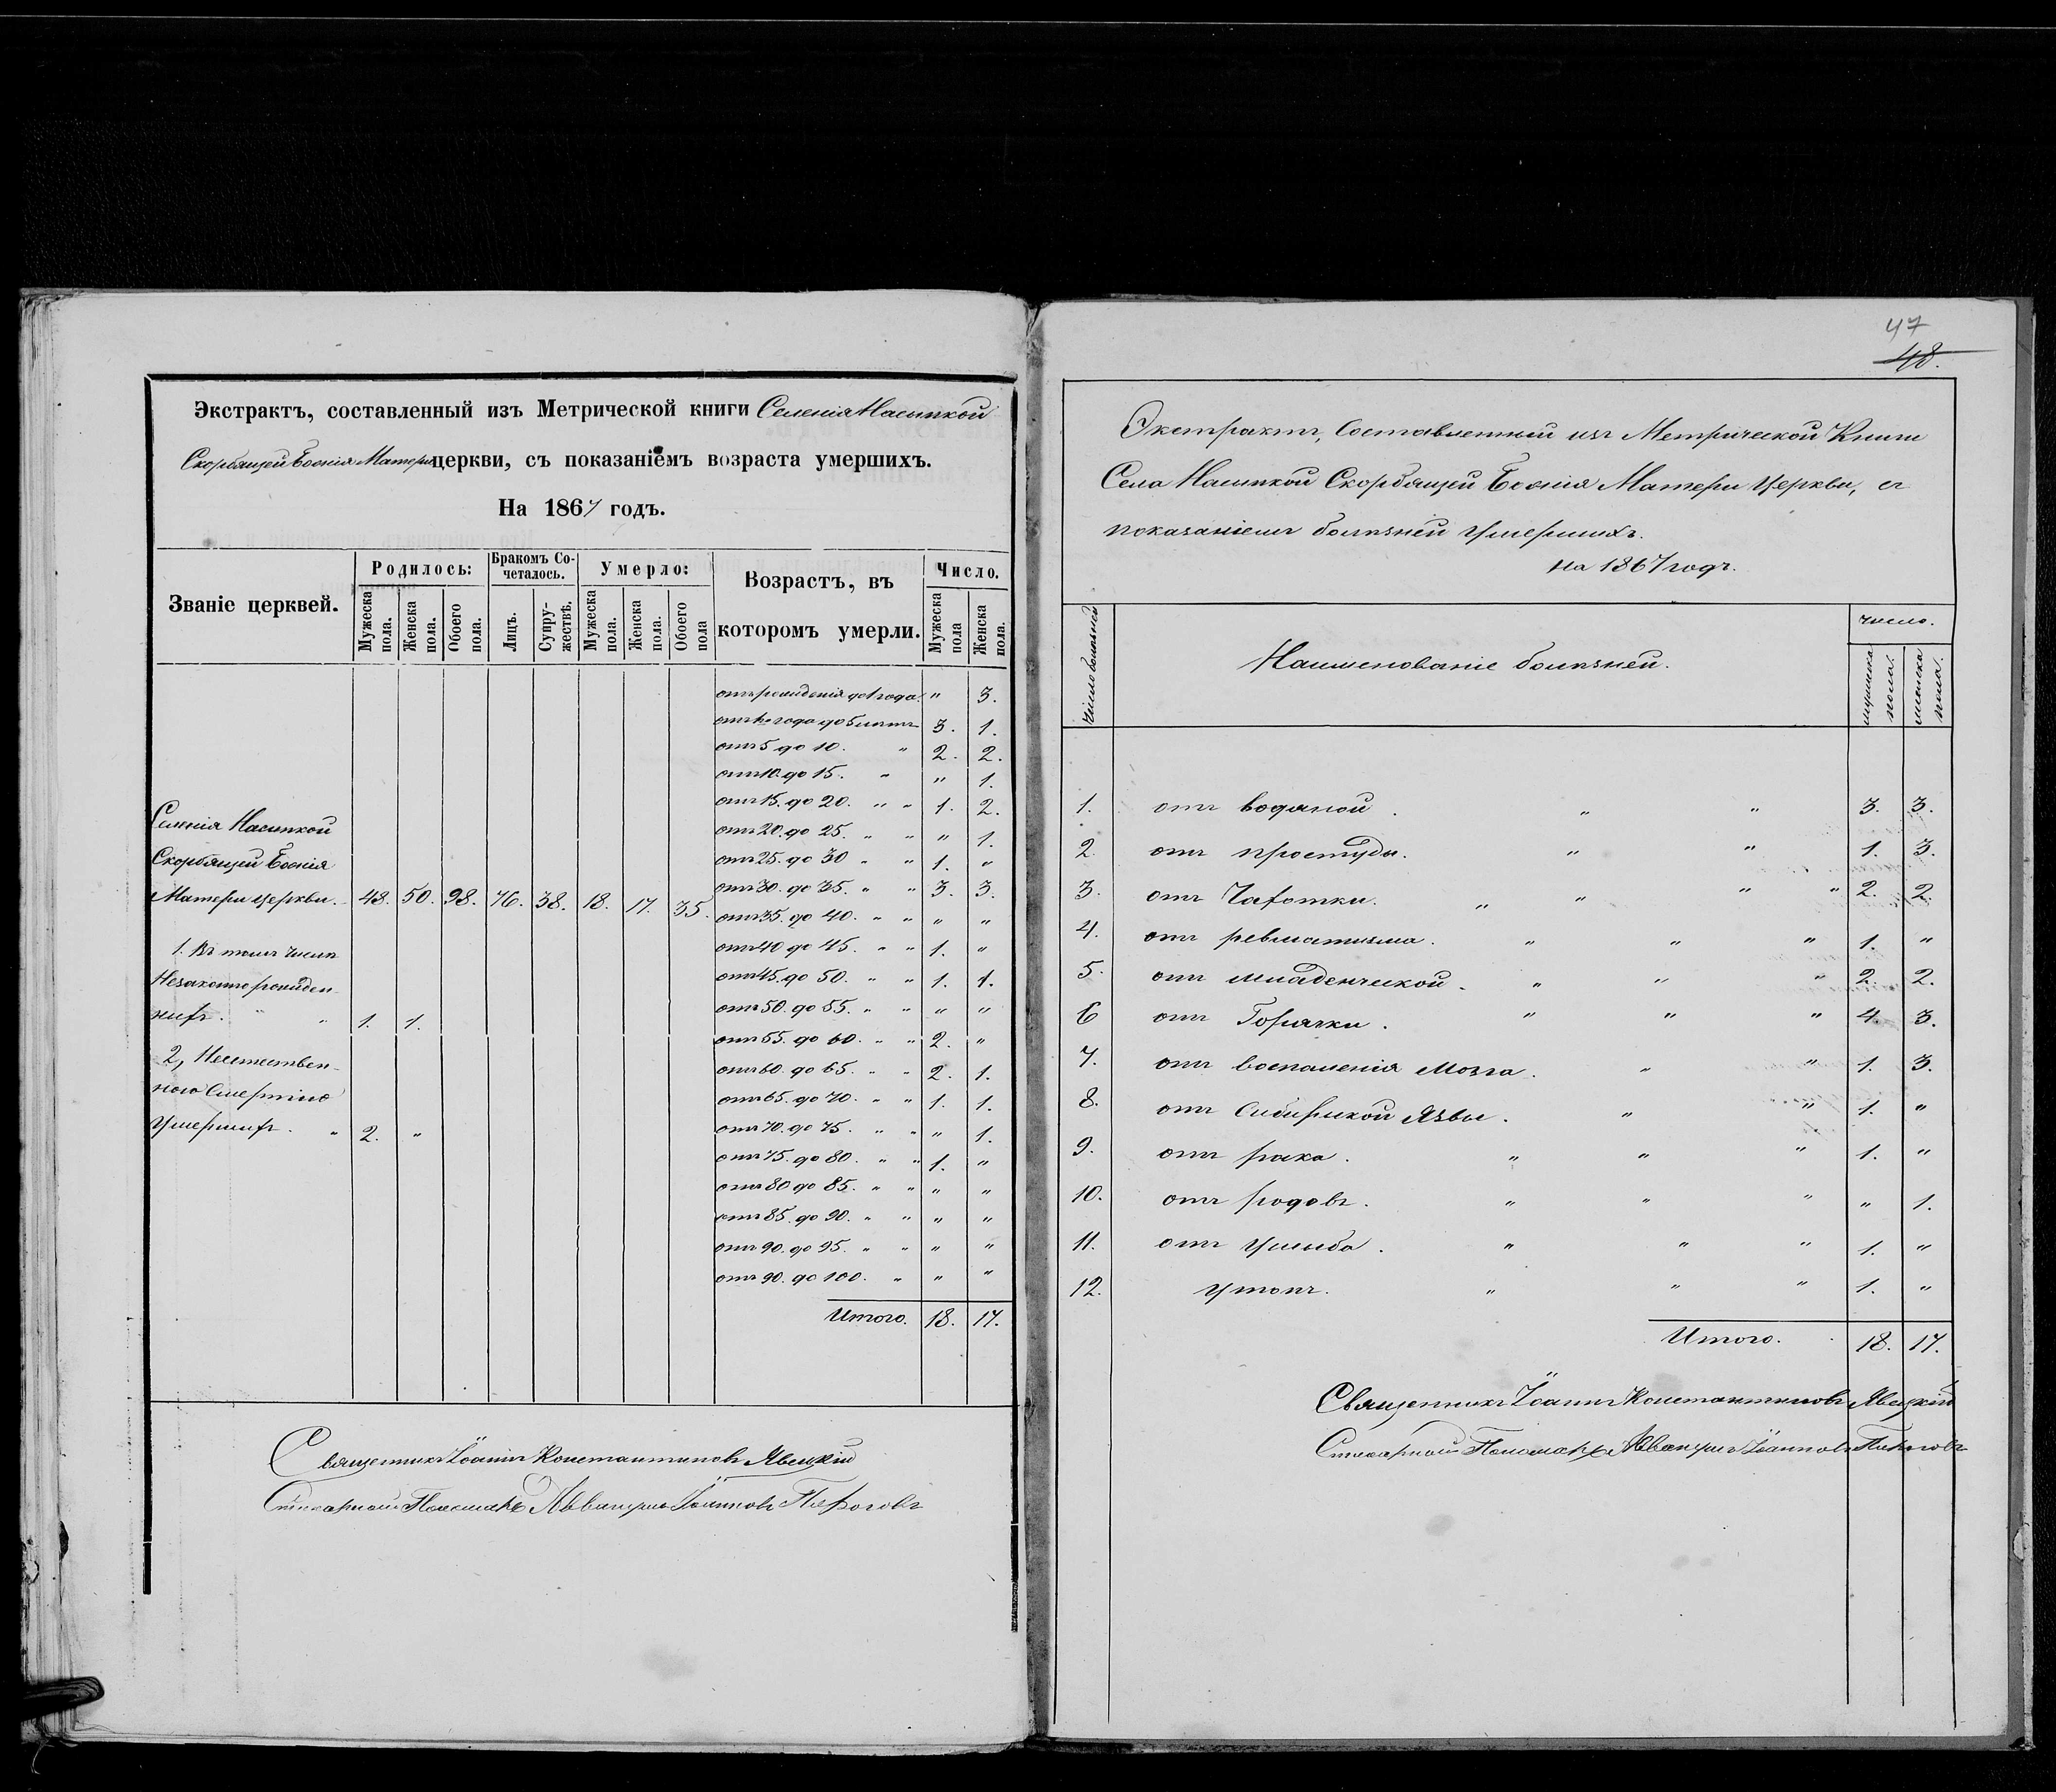 Экстрактъ, составленный изъ Метрической книги Селенія Насыпкой
Скорбящей Божія Матери церкви, съ показаніемъ возраста умершихъ.
На 1867 годъ.
Званіе церквей.
Родилось:
Бракомъ Со-
четалось.
Умерло:
Возрастъ, въ
которомъ умерли.
Число.
Мужеска пола.
Женска пола.
Обоего пола.
Лицъ.
Супру-
жествъ.
Мужеска пола.
Женска пола.
Обоего пола
Мужеска пола
Женска пола.
отъ рожденія до 1 года. " 3.
отъ 1го года до 5 летъ 3. 1.
отъ 5 до 10. " 2. 2.
отъ 10. до 15. " " 1.
отъ 15. до 20. " " 1. 2.
отъ 20. до 25. " " " 1.
отъ 25. до 30 " " 1. "
отъ 30. до 35. " " 3. 3.
отъ 35. до 40. " " " "
отъ 40 до 45. " " 1. "
отъ 45. до 50. " " 1. 1.
отъ 50. до 55. " " " "
отъ 55. до 60. " " 2. "
отъ 60. до 65. " " 2. 1.
отъ 65. до 70. " " 1. 1.
отъ 70. до 75. " " " 1.
отъ 75. до 80. " " 1. "
отъ 80 до 85. " " " "
отъ 85. до 90. " " " "
отъ 90. до 95. " " " "
отъ 90. до 100. " " "
Итого. 18. 17.
Селенія Насыпкой
Скорбящей Божія
Матери церкви. 48. 50. 98. 76. 38. 18. 17. 35.
1. Въ томъ числѣ
Незаконнорожден-
ныхъ. " " 1. 1.
2, Неестествен-
ною Смертію
Умершихъ. " 2. "
Священникъ Іоаннъ Константиновъ Явецкій
Стихарный Пономарь Іоанновъ Пироговъ
47
48.
Экстрактъ, Составленный изъ Метрической Книги
Села Насыпкой Скорбящей Божія Матери Церкви, съ
показаніемъ болѣзней Умершихъ.
на 1867 годъ.
Число болѣзней
Наименованіе болѣзней.
число.
мужеска пола.
женска пола.
1. отъ водяной . " " 3. 3.
2. отъ простуды. " " 1. 3.
3. отъ Чахотки. " " " " 2. 2.
4. отъ ревматизма. " " " 1. "
5. отъ младенческой. " " " 2. 2.
6 отъ Горячки. " " " 4. 3.
7. отъ воспаленія Мозга. " " 1. 3.
8. отъ Сибирской Язвы. " " 1. "
9. отъ рака. " " " 1. "
10. отъ родовъ. " " " " 1.
11. отъ ушиба. " " " 1. "
12. Утопъ. " " " 1. "
Итого. 18. 17.
Священникъ Іоаннъ Константиновъ Явецкій
Стихарный Пономарь Іоанновъ Пироговъ